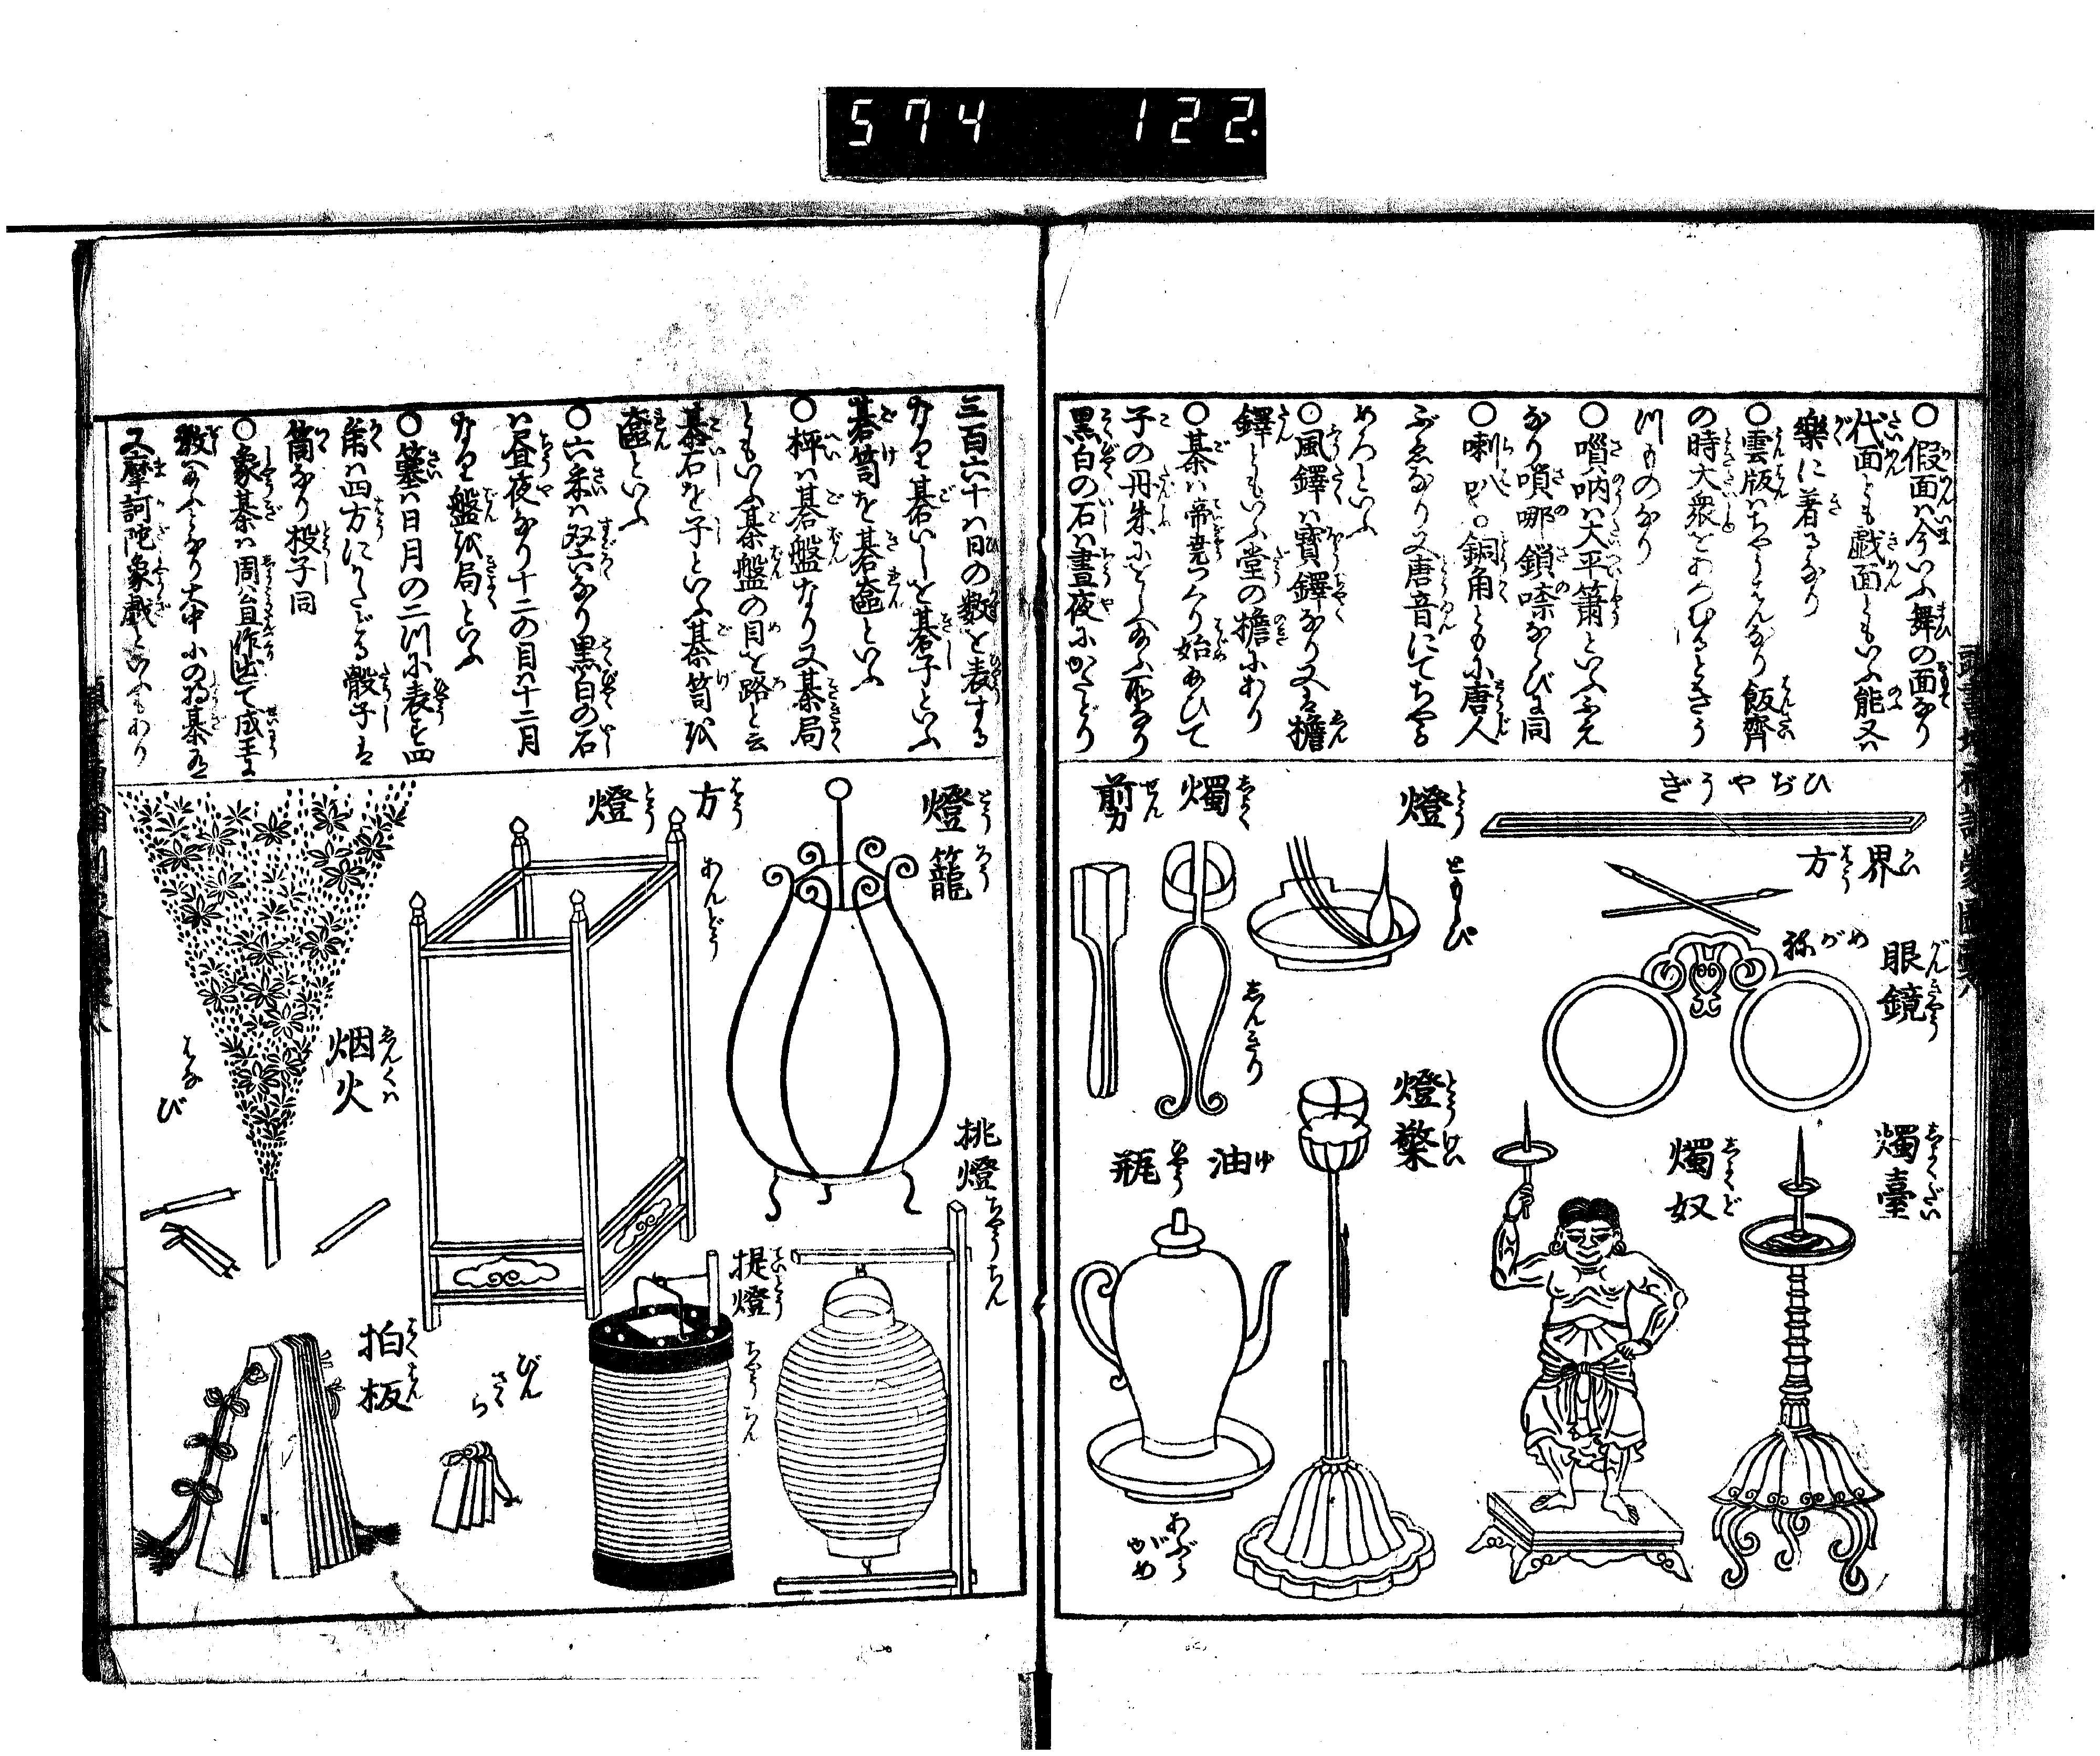 574 122
○假面ハ今いふ舞の面なり
代面とも戯面ともいふ能又ハ
樂に着るなり
○雲版ハちやうはんなり飯齊
の時大衆をあつむるときう
つものなり
○嗩吶ハ大平簫といふふえ
なり嗩哪鎖㖠ならびに同
○喇叭。銅角ともに唐人
ぶえなり又唐音にてちやる
めろといふ
○風鐸ハ寶鐸なり又は擔
鐸ともいふ堂の擔にあり
○棊ハ帝堯つくり始めひて
子の丹朱にをしへ給ふ
黒白の石ハ晝夜にかたどり
三百六十ハ日の数を表する
なり碁いしを碁子といふ
碁笥を碁奩といふ
○枰ハ碁盤なり又棊局
ともいふ棊盤の目を路と云
棊石を子といふ棊笥を
奩といふ
○六采ハ双六なり黒白の石
ハ昼夜なり十二の目ハ十二月
なり盤を局といふ
○簺ハ日月の二つに表を四
角ハ四方にかたどる骰子は
筒なり投子同
○象棊ハ周公旦作出て成王に
教給ふとなり大中小の将棊有
又摩訶陀象戯といふもあり
ひぢやうぎ
界方
眼鏡
めがね
燭臺
燭奴
燈
ともしび
燭剪
しんきり
燈檠
油瓶
あぶらがめ
燈籠
方燈
あんどう
挑燈
ちやうちん
提燈
ちやうちん
烟火
はなび
拍板
びんざさら